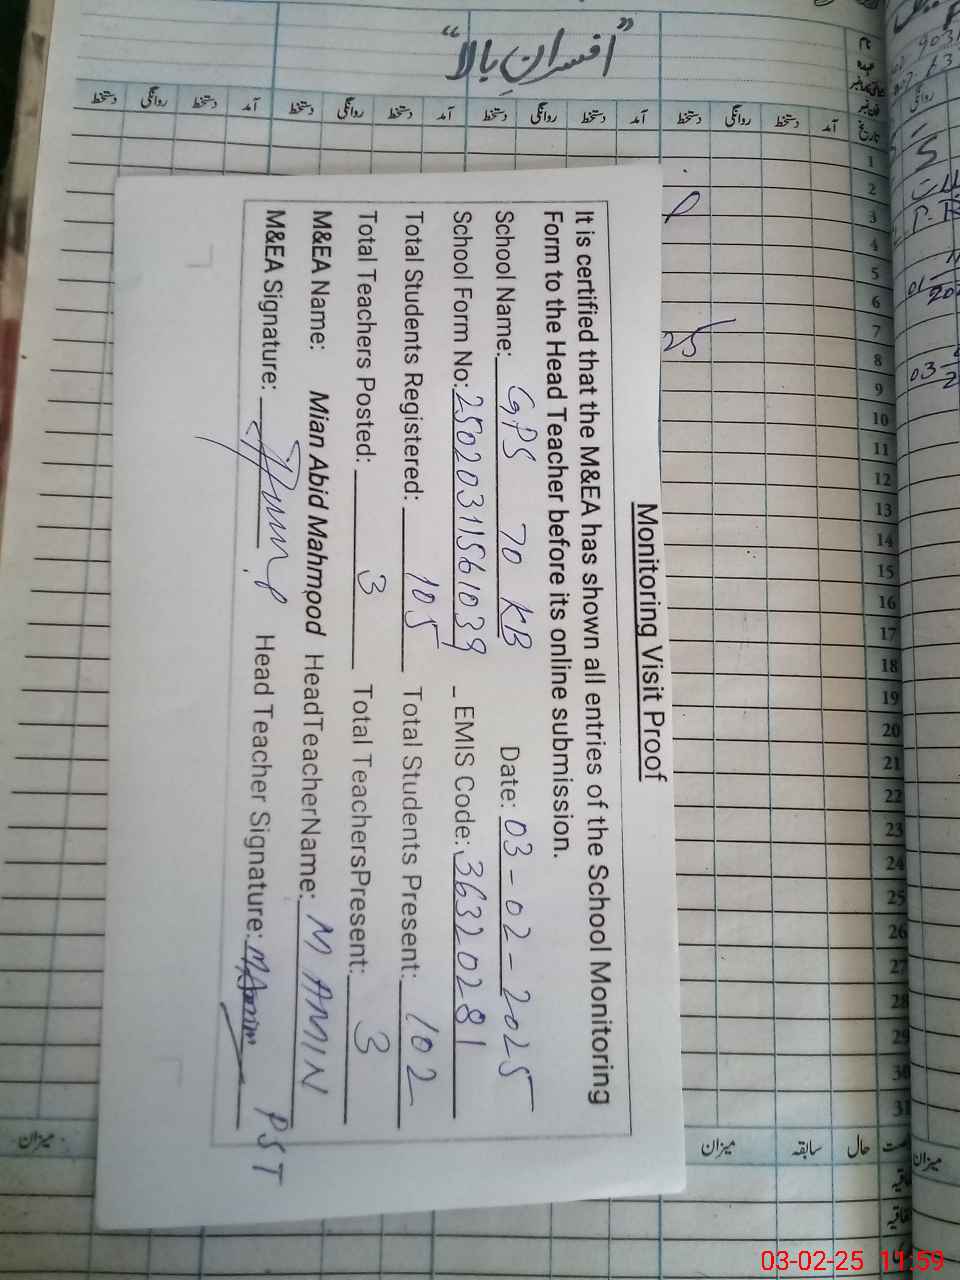 "افسرانِ بالا"
آمد دستخط روانگی دستخط آمد دستخط روانگی دستخط آمد دستخط روانگی دستخط
1
2
3
4
5
6
7
8
9
10
11
12
13
14
15
16
17
18
19
20
21
22
23
24
25
26
27
28
29
30
31
حال سابقہ میزان
میزان
میزان
25
Monitoring Visit Proof
It is certified that the M&EA has shown all entries of the School Monitoring
Form to the Head Teacher before its online submission.
School Name: GPS 70 KB Date: 03-02-2025
School Form No: 25020311561039 _ EMIS Code: 36320281
Total Students Registered: 105 Total Students Present: 102
Total Teachers Posted: 3 Total TeachersPresent: 3
M&EA Name: Mian Abid Mahmood HeadTeacherName: M AMIN
M&EA Signature: Head Teacher Signature: M Amin
PST
03-02-25 11:59